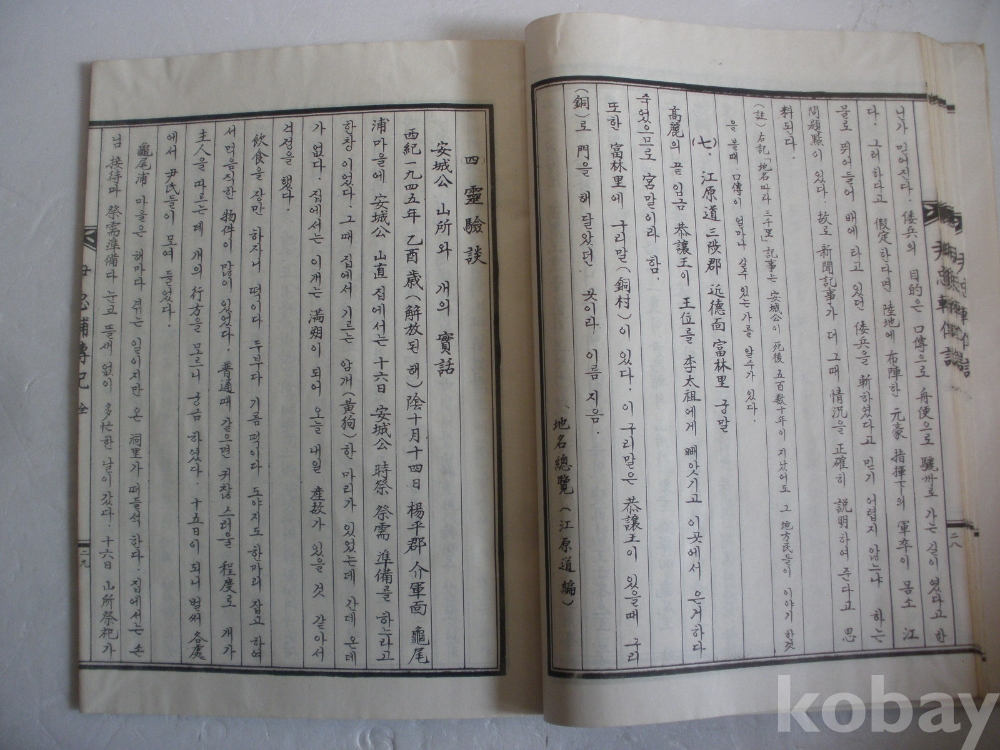 난가 믿어진다 倭兵의 目的은 口傳으로 舟便으로 驪州로 가는 길이 였다고 한
다. 그러 하다고 假定한다면 陸地에 布陣한 元豪 指揮下의 軍卒이 몸소 江
물로 뛰어들어 배에 타고 있던 倭兵을 斬하였다고 믿기 어렵지 않느냐 하는
問題點이 있다. 故로 新聞記事가 더 그때 情況을 正確히 說明하여 준다고 思
料된다.
(註) 右記「地名따라 三千里」記事는 安城公이 死後 五百數十年이 지났어도 그 地方民들이 이야기 한것
을 볼때 口傳이 얼마나 길수 있는가를 알수가 있다
(七). 江原道 三陟郡 近德面 富林里 궁말
高麗의 끝 임금 恭讓王이 王位를 李太祖에게 빼앗기고 이곳에서 은거하다
죽었으므로 宮말이라 함.
또한 富林里에 구리말(銅村)이 있다. 이 구리말은 恭讓王이 있을때 구리
(銅)로 門을 해 달았던 곳이라 이름 지음.
、地名總覽(江原道編)
二八
四 靈驗談
安城公 山所와 개의 實話
西紀一九四五年 乙酉歲(解放된 해) 陰十月十四日 楊平郡 介軍面 龜尾
浦마을에 安城公 山直 집에서는 十六日 安城公 時祭 祭需 準備를 하느라고
한창이었다. 그때 집에서 기르는 암개(黃狗) 한 마리가 있었는데 간데 온데
가 없다. 집에서는 이개는 滿朔이 되어 오늘 내일 產故가 있을것 같아서
걱정을 했다.
飮食을 장만 하자니 떡이다 두부다 기름떡이다 도야지도 한마리 잡고 하여
서 먹음직한 物件이 많이 있었다. 普通때 같으면 귀찮스러울 程度로 개가
主人을 따르는데 개의 行方을 모르니 궁금 하였다. 十五日이 되니 벌써 各處
에서 尹氏들이 모여 들었다.
龜尾浦 마을은 해마다 겪는 일이지만 온 洞里가 떠들석 한다. 집에서는 손
님 接待다 祭需準備다 눈코 뜰새 없이 多忙한 날이 갔다. 十六日 山所祭祀가
全
二九
kobay